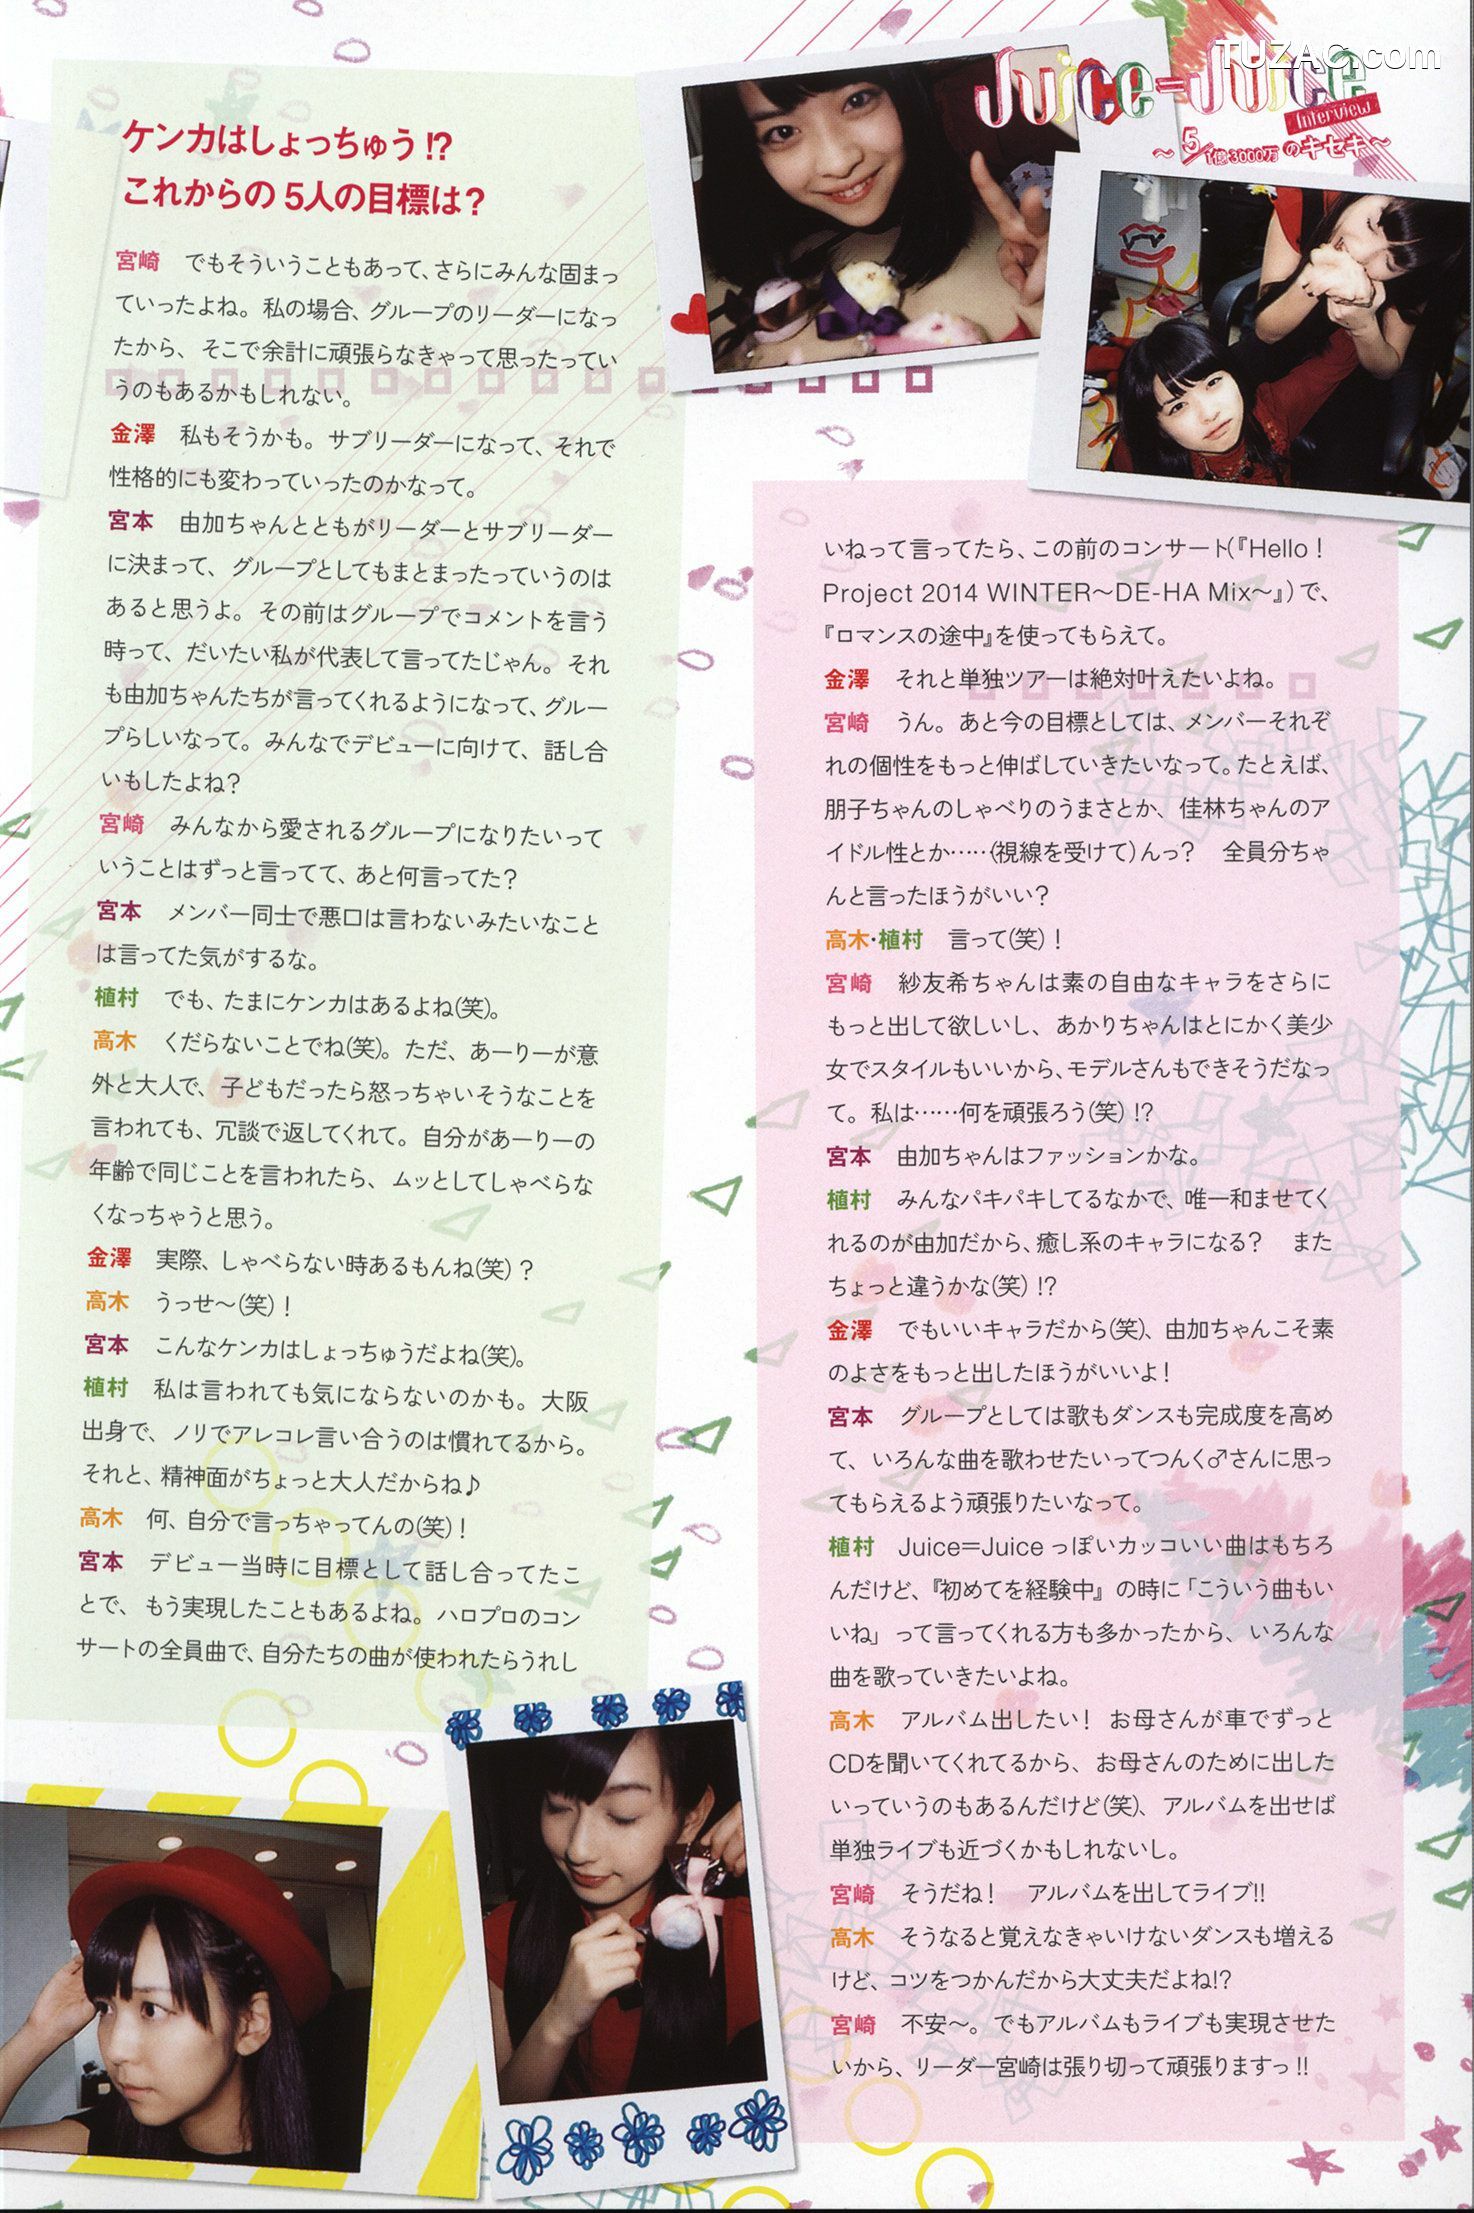 TUZAC.com
Juice=Juice
Interview
～5/1億3000万のキセキ～
ケンカはしょっちゅう!?
これからの5人の目標は？
宮崎　でもそういうこともあって、さらにみんな固まっ
ていったよね。私の場合、グループのリーダーになっ
たから、そこで余計に頑張らなきゃって思ったってい
うのもあるかもしれない。
金澤　私もそうかも。サブリーダーになって、それで
性格的にも変わっていったのかなって。
宮本　由加ちゃんとともがリーダーとサブリーダー
に決まって、グループとしてもまとまったっていうのは
あると思うよ。その前はグループでコメントを言う
時って、だいたい私が代表して言ってたじゃん。それ
も由加ちゃんたちが言ってくれるようになって、グルー
プらしいなって。みんなでデビューに向けて、話し合
いもしたよね？
宮崎　みんなから愛されるグループになりたいって
いうことはずっと言ってて、あと何言ってた？
宮本　メンバー同士で悪口は言わないみたいなこと
は言ってた気がするな。
植村　でも、たまにケンカはあるよね(笑)。
高木　くだらないことでね(笑)。ただ、あーりーが意
外と大人で、子どもだったら怒っちゃいそうなことを
言われても、冗談で返してくれて。自分があーりーの
年齢で同じことを言われたら、ムッとしてしゃべらな
くなっちゃうと思う。
金澤　実際、しゃべらない時あるもんね(笑)？
高木　うっせ～(笑)！
宮本　こんなケンカはしょっちゅうだよね(笑)。
植村　私は言われても気にならないのかも。大阪
出身で、ノリでアレコレ言い合うのは慣れてるから。
それと、精神面がちょっと大人だからね♪
高木　何、自分で言っちゃってんの(笑)！
宮本　デビュー当時に目標として話し合ってたこ
とで、もう実現したこともあるよね。ハロプロのコン
サートの全員曲で、自分たちの曲が使われたらうれし
いねって言ってたら、この前のコンサート(『Hello！
Project 2014 WINTER～DE-HA Mix～』)で、
『ロマンスの途中』を使ってもらえて。
金澤　それと単独ツアーは絶対叶えたいよね。
宮崎　うん。あと今の目標としては、メンバーそれぞ
れの個性をもっと伸ばしていきたいなって。たとえば、
朋子ちゃんのしゃべりのうまさとか、佳林ちゃんのア
イドル性とか……(視線を受けて)んっ？　全員分ちゃ
んと言ったほうがいい？
高木・植村　言って(笑)！
宮崎　紗友希ちゃんは素の自由なキャラをさらに
もっと出して欲しいし、あかりちゃんはとにかく美少
女でスタイルもいいから、モデルさんもできそうだなっ
て。私は……何を頑張ろう(笑)!?
宮本　由加ちゃんはファッションかな。
植村　みんなパキパキしてるなかで、唯一和ませてく
れるのが由加だから、癒し系のキャラになる？　また
ちょっと違うかな(笑)!?
金澤　でもいいキャラだから(笑)、由加ちゃんこそ素
のよさをもっと出したほうがいいよ！
宮本　グループとしては歌もダンスも完成度を高め
て、いろんな曲を歌わせたいってつんく♂さんに思っ
てもらえるよう頑張りたいなって。
植村　Juice=Juiceっぽいカッコいい曲はもちろ
んだけど、『初めてを経験中』の時に「こういう曲もい
いね」って言ってくれる方も多かったから、いろんな
曲を歌っていきたいよね。
高木　アルバム出したい！ お母さんが車でずっと
CDを聞いてくれてるから、お母さんのために出した
いっていうのもあるんだけど(笑)、アルバムを出せば
単独ライブも近づくかもしれないし。
宮崎　そうだね！　アルバムを出してライブ!!
高木　そうなると覚えなきゃいけないダンスも増える
けど、コツをつかんだから大丈夫だよね!?
宮崎　不安～。でもアルバムもライブも実現させた
いから、リーダー宮崎は張り切って頑張りますっ!!